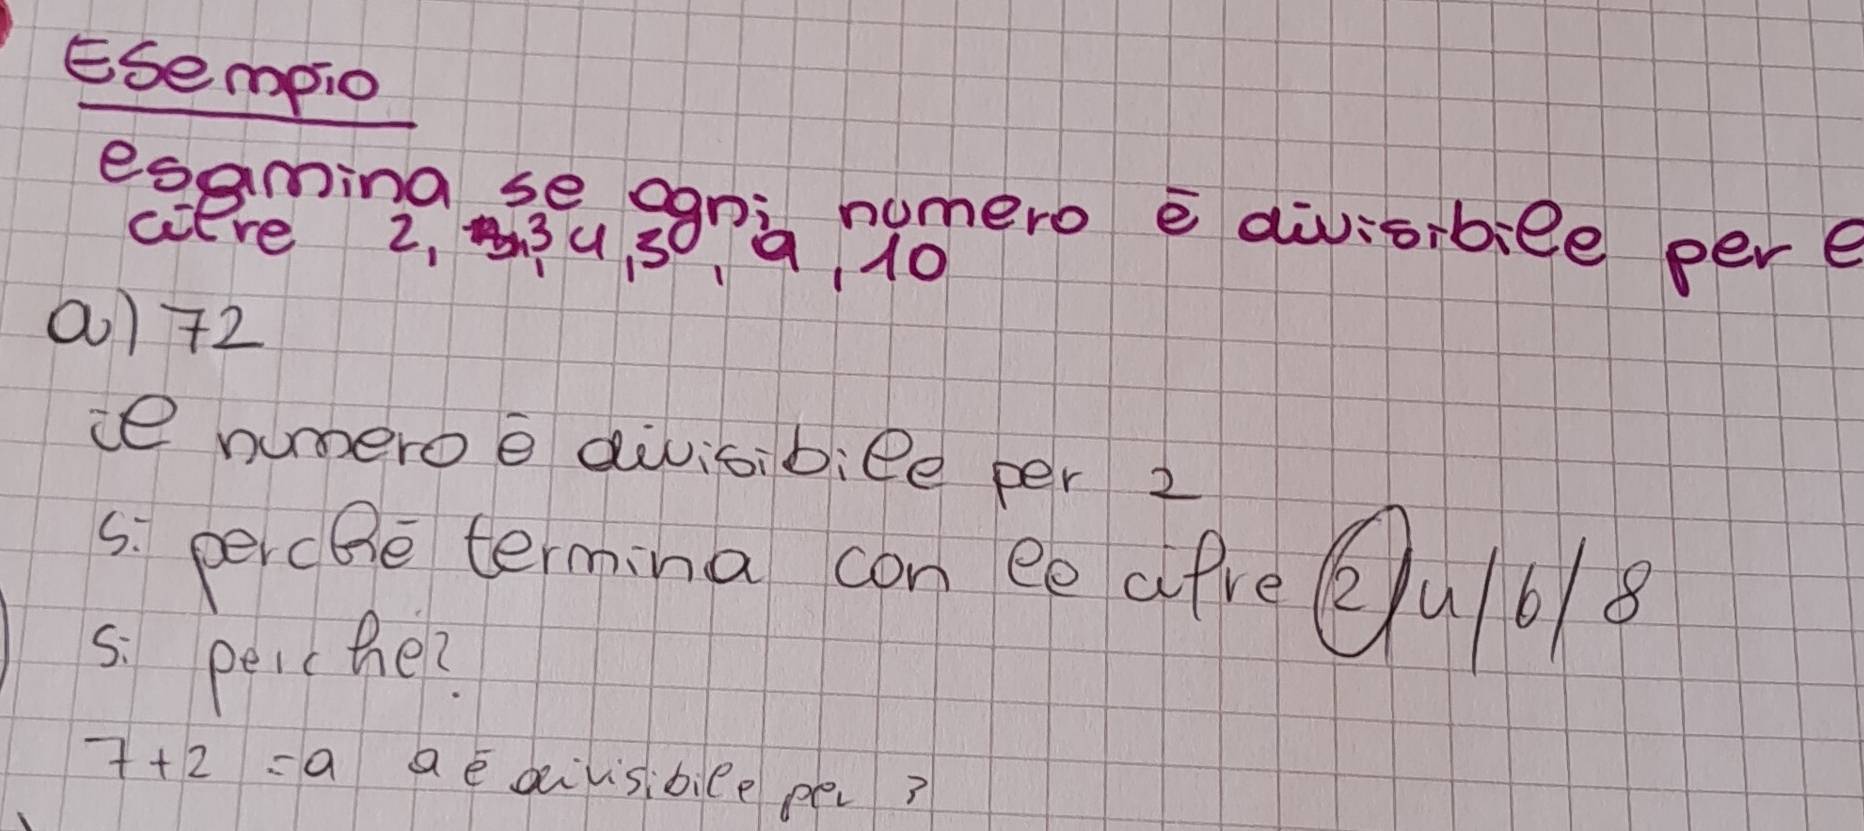 Esempio
esamina se ogni numero è divisibile per e
cifre 2, 3, 4, 5, 9, 10
a) 72
il numero è divisibile per 2
si perchè termina con le cifre 2/4/6/8
si perche?
7+2 =9 9 è divisibile per 3